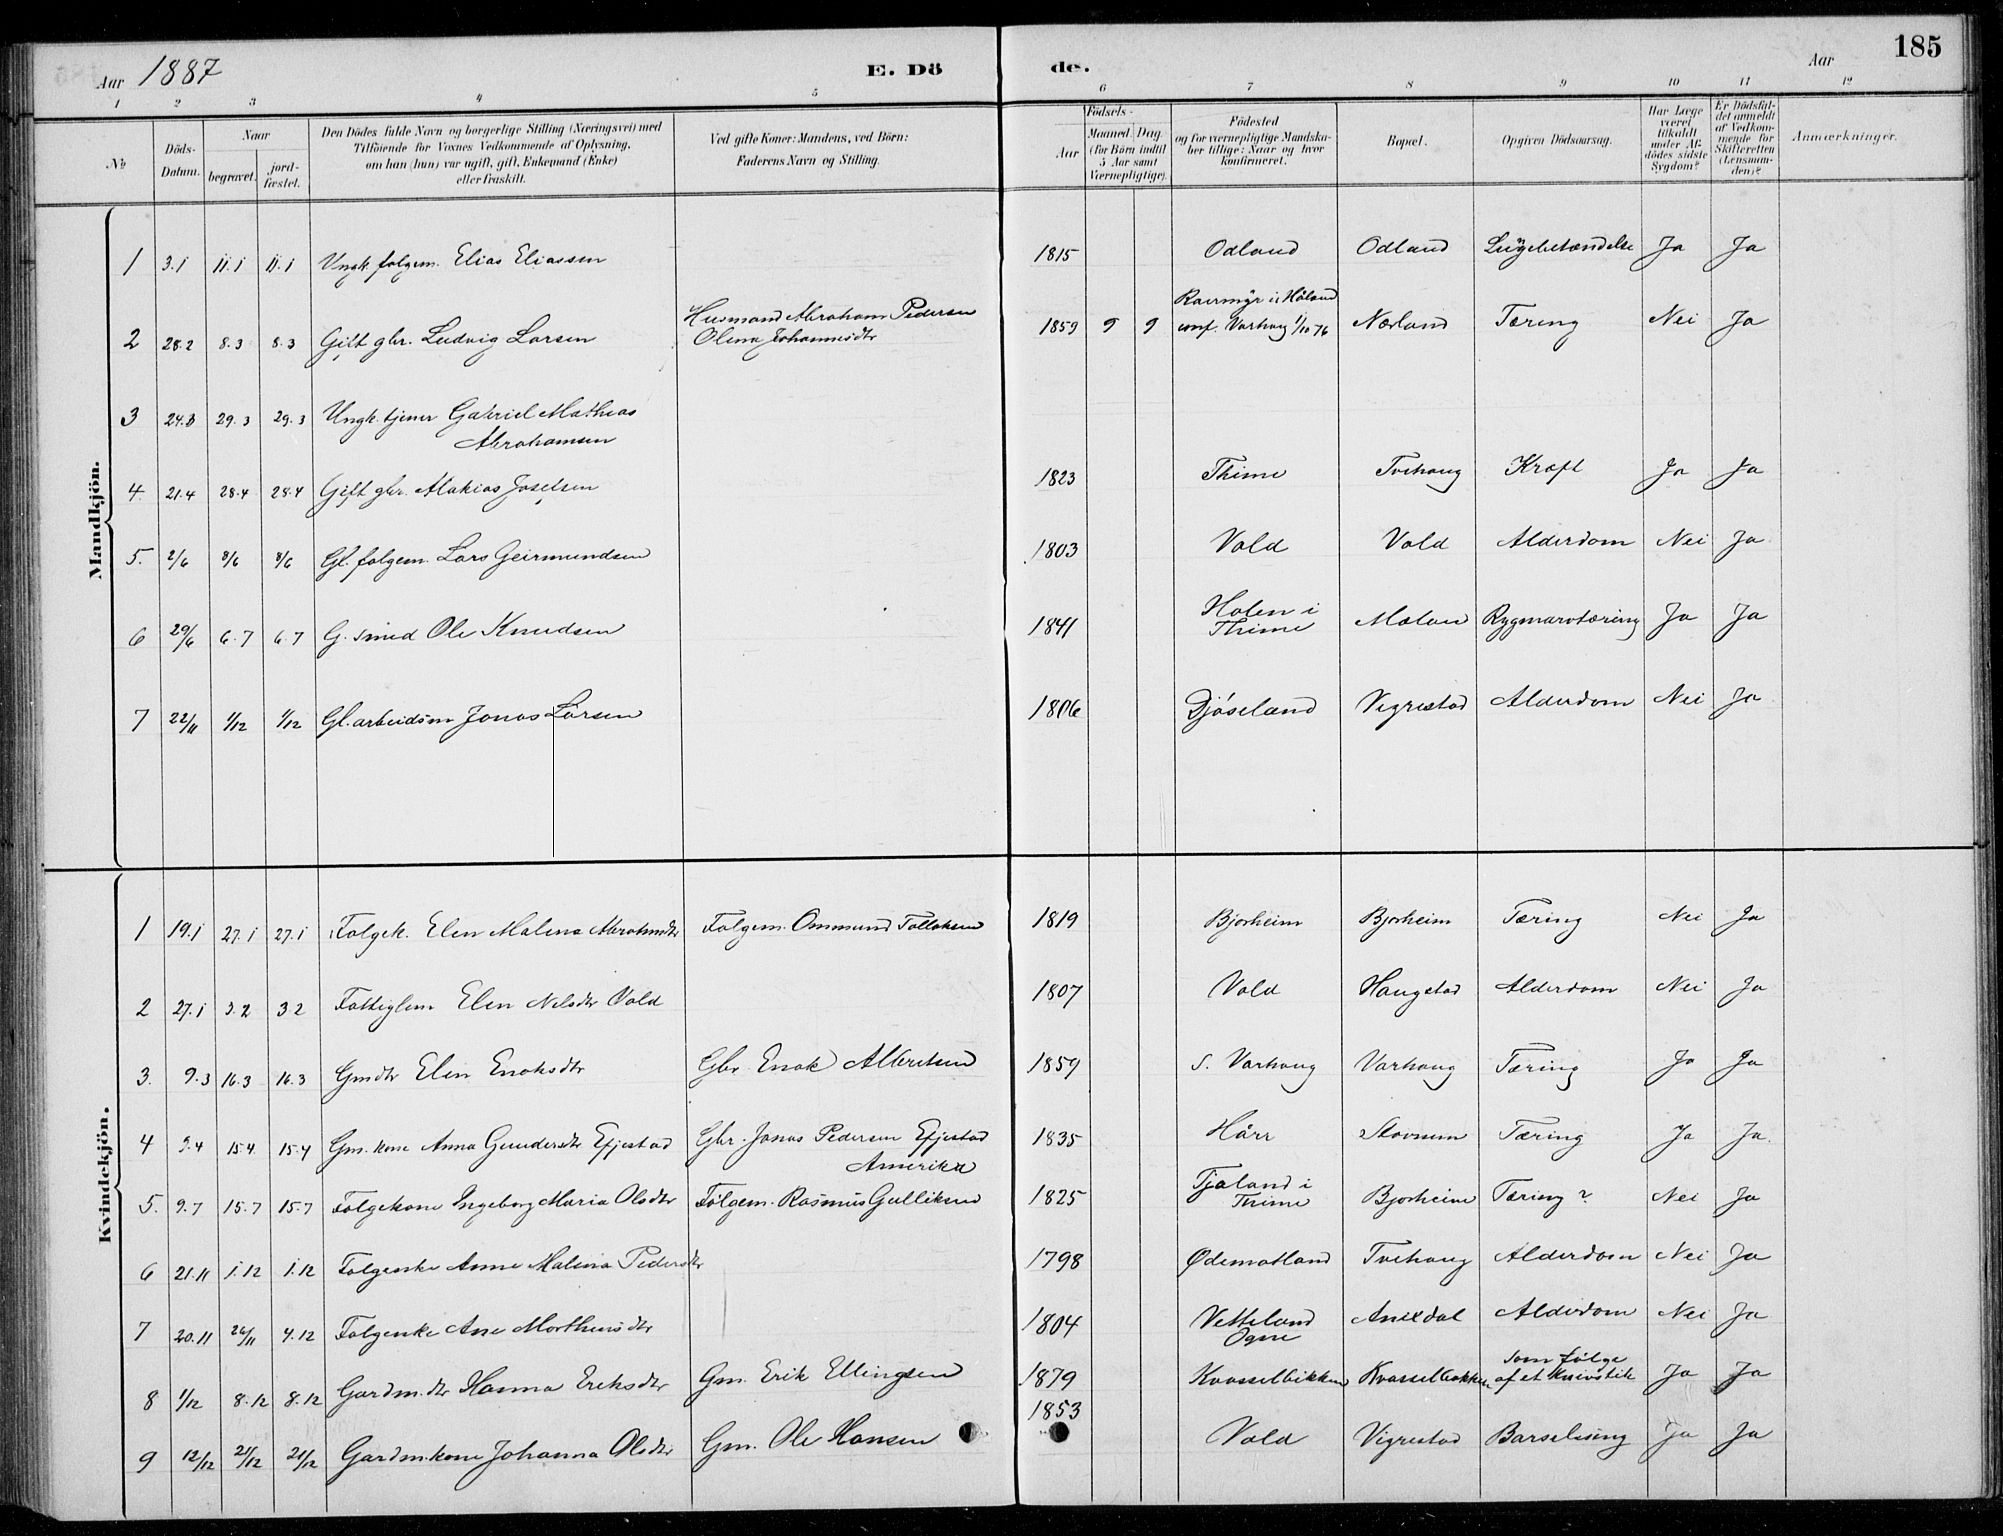 Aar 1887 E. Dö
de. Aar 185
1 2 3 4 5 6 7 8 9 10 11 12
No
Döds-Datum.
Naar
begravet.
jord-fæstet.
Den Dödes fulde Navn og borgerlige Stilling (Næringsvei) med
Tilföiende for Voxnes Vedkommende af Oplysning,
om han (hun) var ugift, gift, Enkemand (Enke)
eller fraskilt.
Ved gifte Koner: Mandens, ved Börn:
Faderens Navn og Stilling.
Födsels-
Aar
Maaned. Dag.
(for Börn indtil
5 Aar samt
Værnepligtige).
Födested
og for værnepligtige Mandska-
ber tillige: Naar og hvor
konfirmeret.
Bopæl.
Opgiven Dödsaarsag.
Har Læge
været
tilkaldt
under Af-
dödes sidste
Sygdom?
Er Dödsfal-
det anmeldt
af Vedkom-
mende for
Skifteretten
(Lensman-
den)?
Anmærkninger.
Mandkjön.
1 3.1 11.1 11.1 Ungk. folgem. Elias Eliassen 1815 Odland Odland Ja Ja
2 28.2 8.3 8.3 Gift gbr. Ludvig Larsen Husmand Abraham Pedersen
Olena Johannesdtr 1859 9 9 i Håland
conf. Varhaug 1/10 76 Nærland Tæring Nei Ja
3 24.3 29.3 29.3 Ungk. tjener Gabriel Mathias
Abrahamsen
4. 21.4 28.4 28.4 Gift gbr. Malkias Josefsen 1823 Thime Tvihaug Kræft Ja Ja
5. 2/6 8/6 8/6 Gl. folgem. Lars Geirmundsen 1803 Vold Vold Alderdom Nei Ja.
6 29/6 6.7 6.7 G. smed Ole Knudsen 1841 Holen i
Thime Mæland Rygmarvtæring Ja Ja
7 22/11 1/12 1/12 Gl. arbeidsm Jonas Larsen 1806 Djøseland Vigrestad Alderdom Nei Ja
Kvindekjön.
1 19.1 27.1 27.1 Folgek. Elen Malena Abrahmdtr Folgem. Ommund Tollaksen 1819 Bjorheim Bjorheim Tæring Nei Ja
2 27.1 3.2 3.2 Fattiglem Elen Nelsdtr Vold 1807 Vold Haugstad Alderdom Nei Ja
3. 9.3 16.3 16.3 Gmdtr Elen Enoksdtr Gbr. Enok Albretsen 1859 S. Varhaug Varhaug Tæring Ja Ja
4 9.4 15.4 15.4 Gm. kone Anna Gundersdtr Efjestad Gbr. Jonas Pedersen Efjestad
Amerika 1835 Hårr Stavnem Tæring Ja Ja.
5. 9.7 15.7 15.7 Folgekone Ingeborg Maria Olsdtr Følgem. Rasmus Gulliksen 1825 Tjåland i
Thime Bjorheim Tæring? Nei Ja
6 21.11 1.12 1.12 Folgenke Anne Malena Pedersdtr 1798 Ødemotland Tvihaug Alderdom Nei Ja
7 20.11 26/11 4.12 Folgenke Ane Morthensdtr 1804 Vetteland
Ogne Anixdal Alderdom Nei Ja
8 1/12 8.12 8.12 Gardm.dtr Hanna Eriksdtr Gm. Erik Ellingsen 1879 Kvasselbikken Kvasselbakken som følge
af et Knivstik Ja Ja
9 12/12 21/12 21/12 Gardm.kone Johanna Olsdtr Gm. Ole Hansen 1853 Vold Vigrestad Barselseng Ja Ja